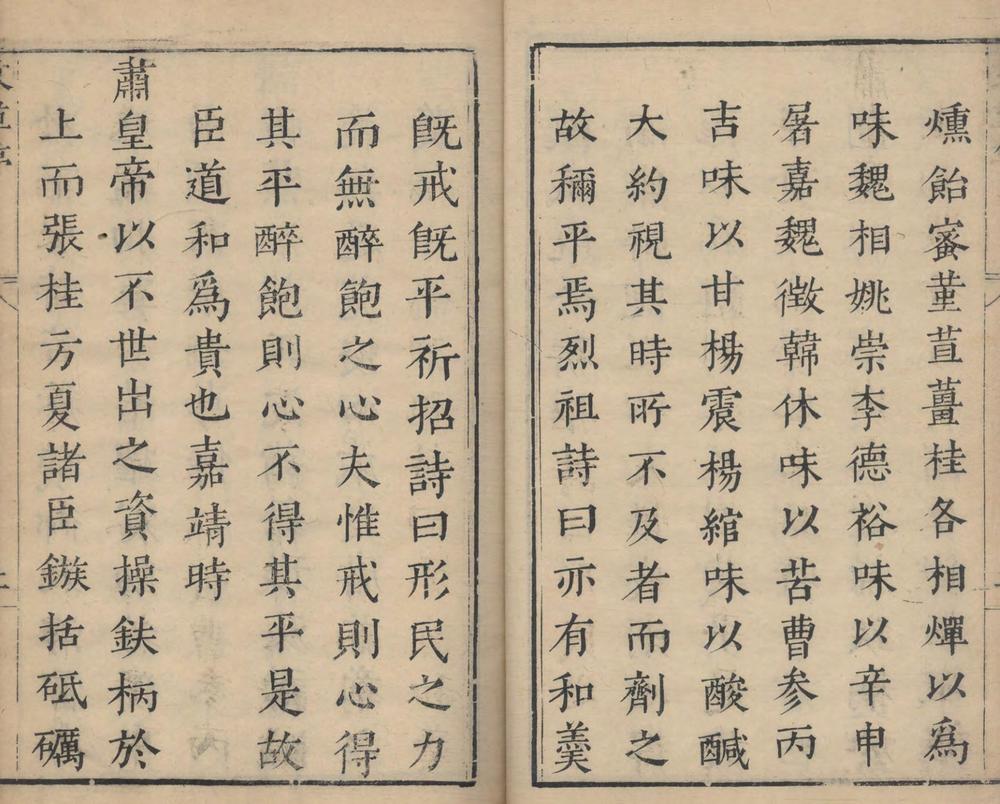 燻飴蜜菫荁薑桂各相燀以爲
味魏相姚崇李德裕味以辛申
屠嘉魏徵韓休味以苦曹參丙
吉味以甘楊震楊綰味以酸醎
大約視其時所不及者而劑之
故稱平焉烈祖詩曰亦有和羹
旣戒旣平祈招詩曰形民之力
而無醉飽之心夫惟戒則心得
其平醉飽則心不得其平是故
臣道和爲貴也嘉靖時
肅皇帝以不世出之資操鈇柄於
上而張桂方夏諸臣鏃括砥礪